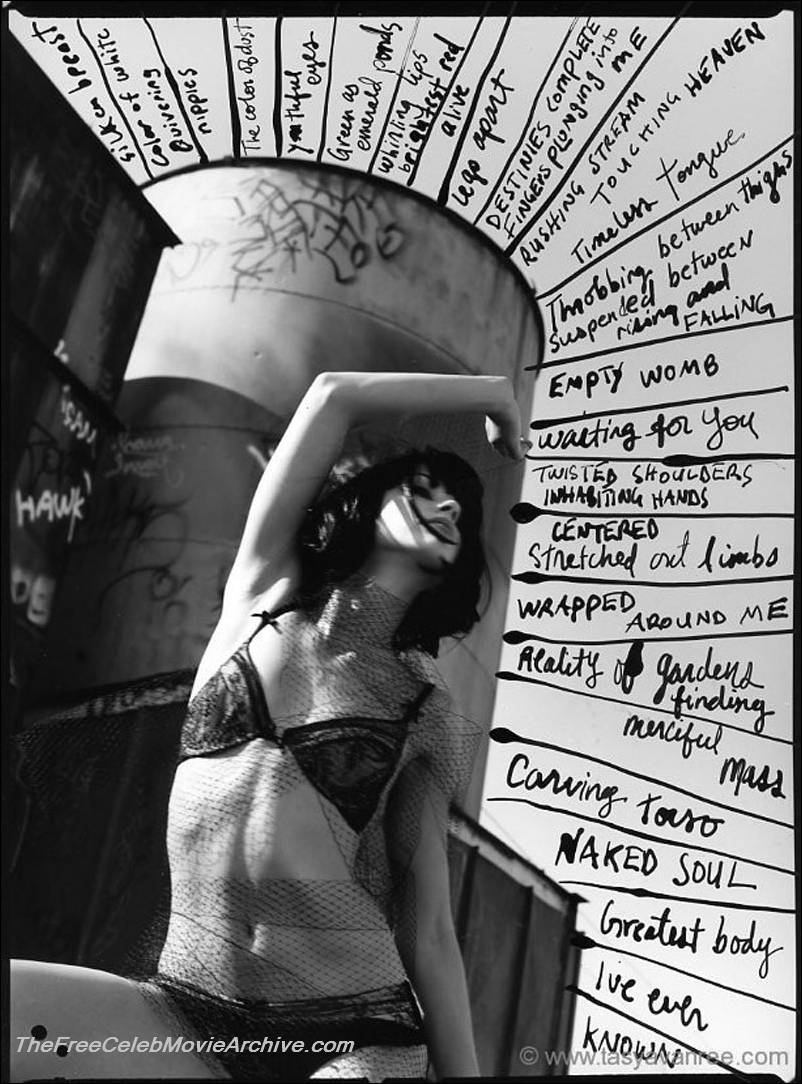 silken breast
color of white
Quivering
nipples
The color of dust
youthful
eyes
Green as
emerald ponds
whirling lips
brightest red
alive
legs apart
DESTINIES COMPLETE
FINGERS PLUNGING into
ME
RUSHING STREAM
TOUCHING HEAVEN
Timeless tongue
Throbbing between thighs
suspended between
rising and
FALLING
EMPTY WOMB
waiting for you
TWISTED SHOULDERS
INHABITING HANDS
CENTERED
Stretched out limbs
WRAPPED AROUND ME
Reality of gardens
finding
merciful
mass
Carving torso
NAKED SOUL
Greatest body
I've ever
KNOWN
HAWK
TheFreeCelebMovieArchive.com
© www.tasyavanree.com